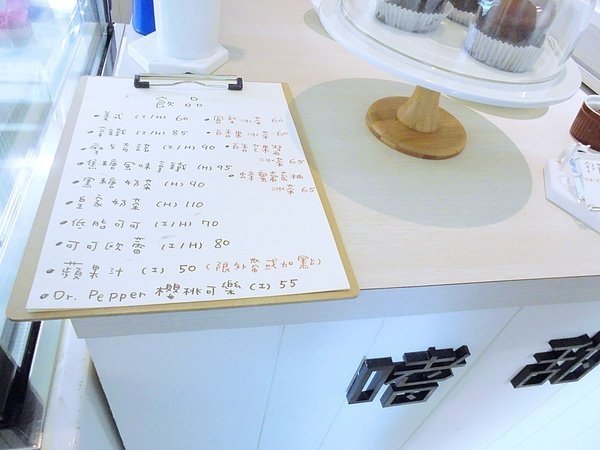 飲品
•美式 (I/H) 60
•拿鐵 (I/H) 85
(I/H) 90
•焦糖風味拿鐵 (H) 95
•黑糖奶茶 (H) 90
•皇家奶茶 (H) 110
•低脂可可 (I/H) 70
•可可歐蕾 (I/H) 80
•蘋果汁 (I) 50 (限外帶或加點)
•Dr. Pepper 櫻桃可樂 (I) 55
•鳳梨冰茶 60
•百香果冰茶 60
冰茶 65
•蜂蜜
冰茶 65
嗜 甜